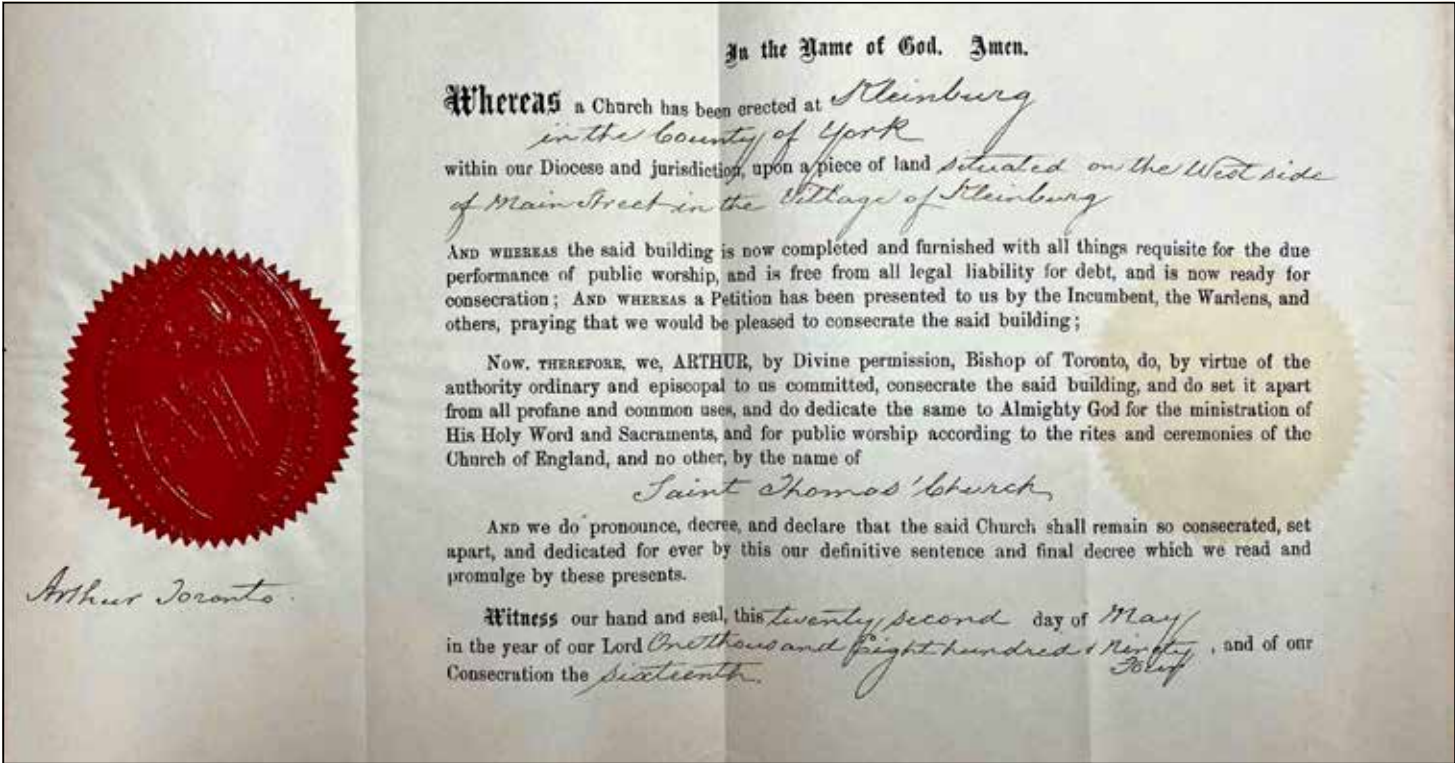 In the Name of God. Amen.
Whereas a Church has been erected at Kleinburg
in the County of York
within our Diocese and jurisdiction, upon a piece of land situated on the West side
of Main Street in the Village of Kleinburg
AND WHEREAS the said building is now completed and furnished with all things requisite for the due
performance of public worship, and is free from all legal liability for debt, and is now ready for
consecration; AND WHEREAS a Petition has been presented to us by the Incumbent, the Wardens, and
others, praying that we would be pleased to consecrate the said building;
NOW, THEREFORE, we, ARTHUR, by Divine permission, Bishop of Toronto, do, by virtue of the
authority ordinary and episcopal to us committed, consecrate the said building, and do set it apart
from all profane and common uses, and do dedicate the same to Almighty God for the ministration of
His Holy Word and Sacraments, and for public worship according to the rites and ceremonies of the
Church of England, and no other, by the name of
Saint Thomas' Church
AND we do pronounce, decree, and declare that the said Church shall remain so consecrated, set
apart, and dedicated for ever by this our definitive sentence and final decree which we read and
promulge by these presents.
Arthur Toronto.
Witness our hand and seal, this twenty second day of May
in the year of our Lord One thousand Eight hundred & Ninety , and of our
Four
Consecration the sixteenth.